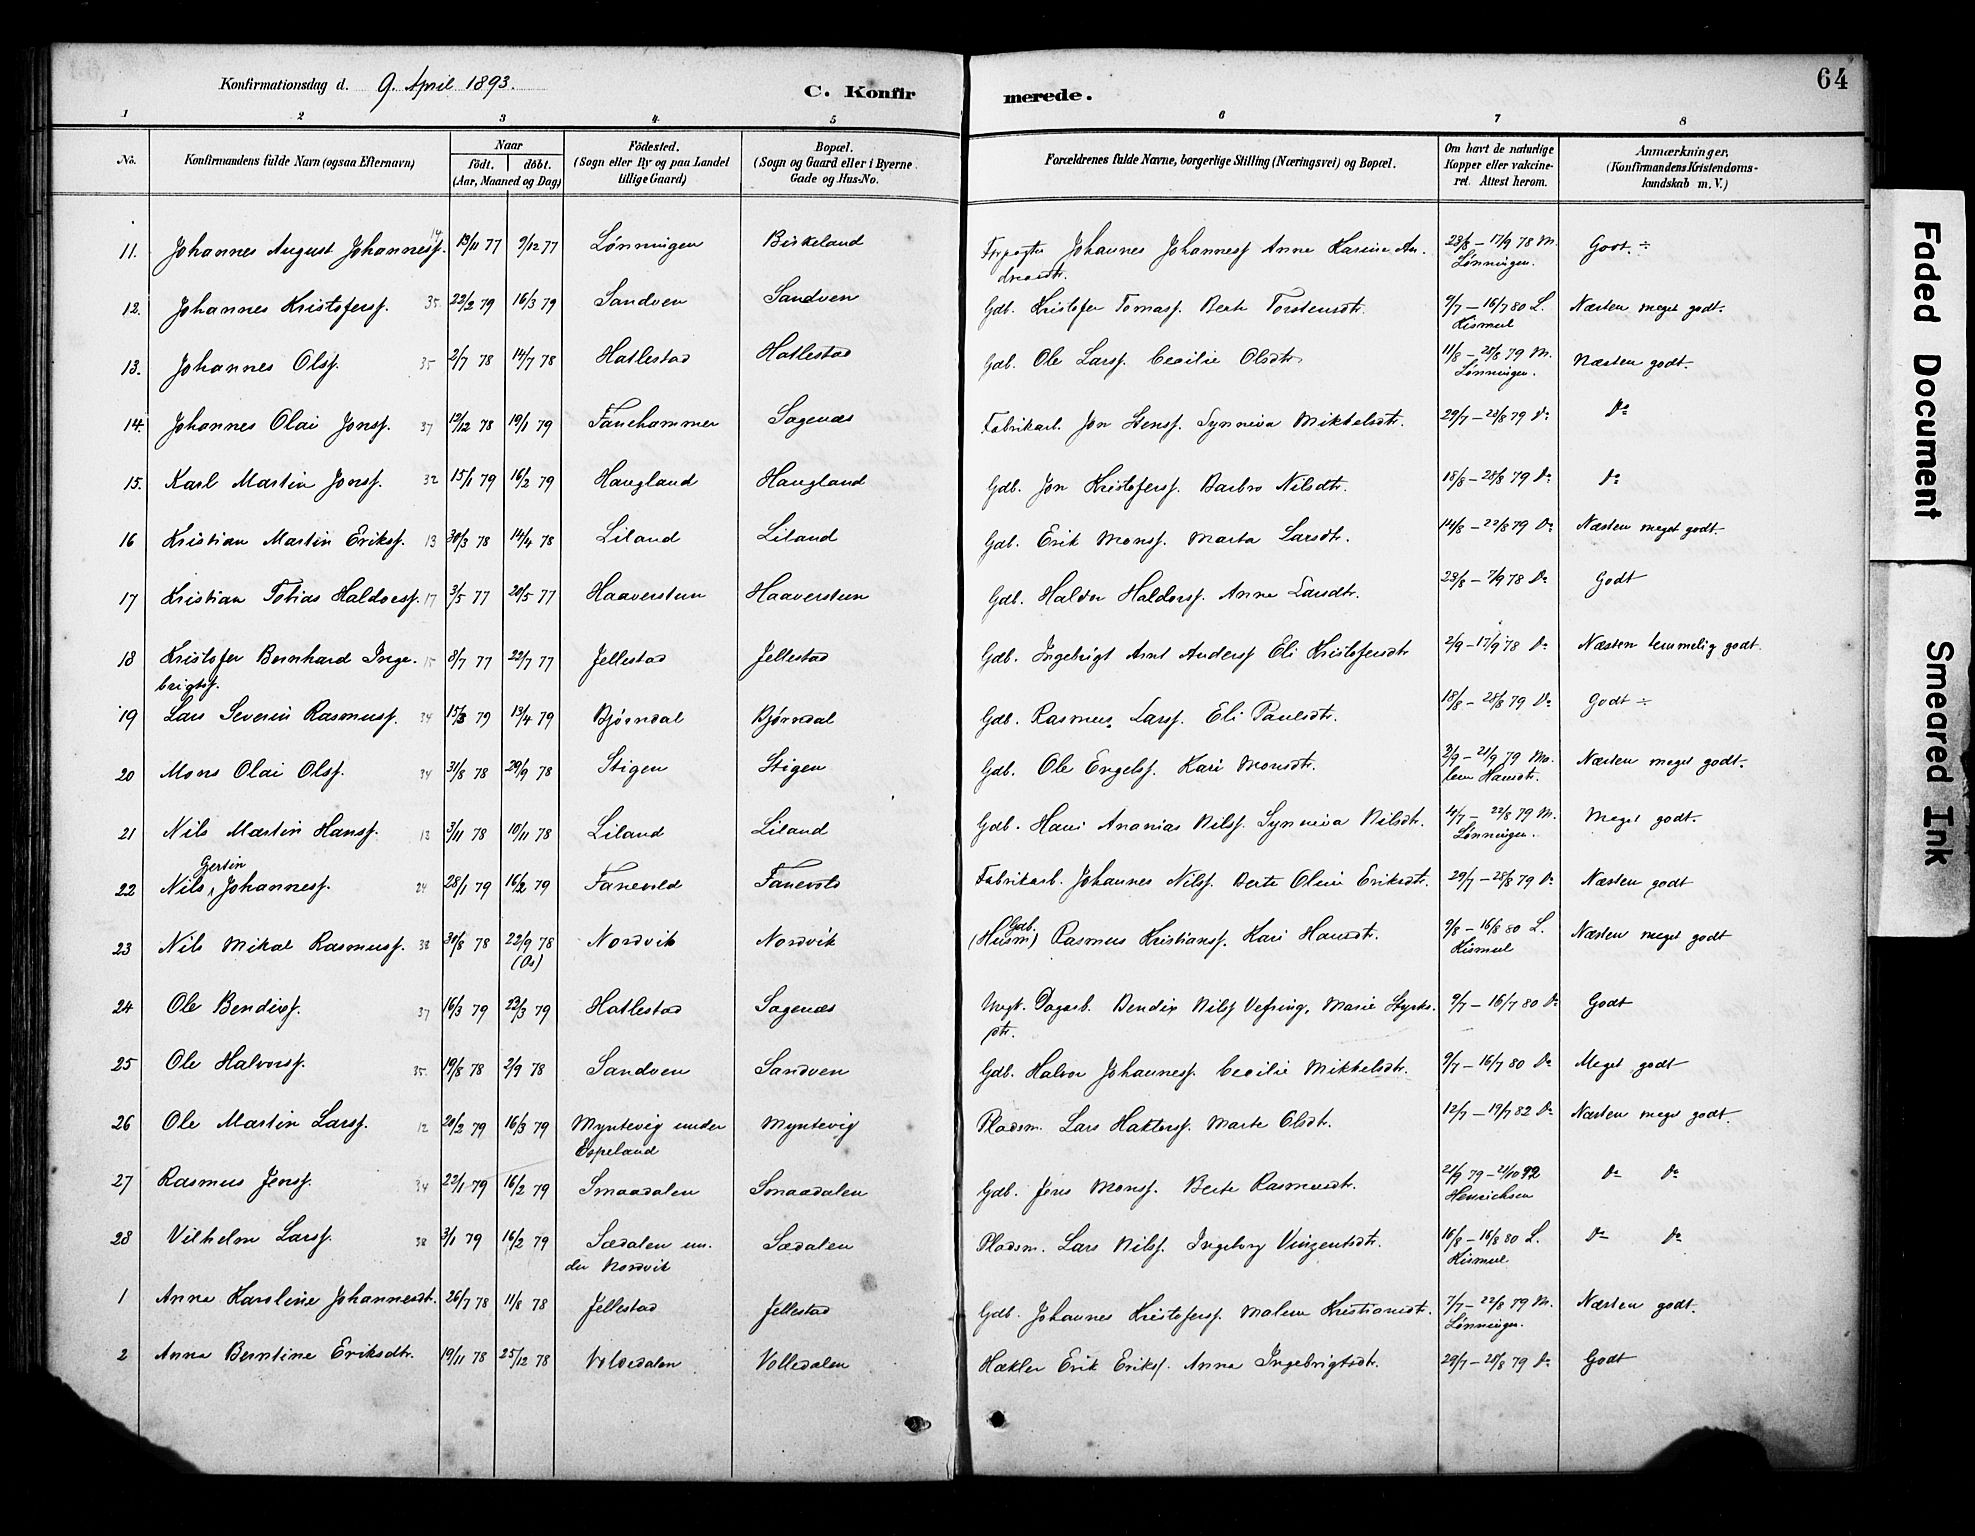 Konfirmationsdag d. 9. April 1893.
C. Konfir
merede.
64
1 2 3 4 5 6 7 8
No.
Konfirmandens fulde Navn (ogsaa Efternavn)
Naar
født. døbt.
(Aar, Maaned og Dag)
Fødested.
(Sogn eller By og paa Landet
tillige Gaard)
Bopæl.
(Sogn og Gaard eller i Byerne
Gade og Hus-No.
Forældrenes fulde Navne, borgerlige Stilling (Næringsvei) og Bopæl.
Om havt de naturlige
Kopper eller vakcine-
ret. Attest herom.
Anmærkninger,
(Konfirmandens Kristendoms-
kundskab m. V.)
11. Johannes August Johannesf. 14 13/11 77 9/12 77 Lønningen Birkeland Forpagter Johannes Johannesf Anne Karine An- 23/8 – 17/9 78 M. Godt ÷
dreasdtr. Lønningen.
12. Johannes Kristofersf. 35 22/2 79 16/3 79 Sandven Sandven Gdb. Kristofer Tomasf. Berte Torstensdtr. 9/7 – 16/7 80 L. Næsten meget godt.
Kismul
13. Johannes Olsf. 35 2/7 78 14/7 78 Hatlestad Hatlestad Gdb. Ole Larsf. Cecilie Olsdtr. 11/8 – 28/8 79 M. Næsten godt.
Lønningen.
14. Johannes Olai Jonsf. 37 12/12 78 19/1 79 Fanehammer Sagenæs Fabrikarb. Jon Stensf. Synneva Mikkelsdtr. 29/7 – 22/8 79 Do Do
15. Karl Martin Jonsf. 32 15/1 79 16/2 79 Haugland Haugland Gdb. Jon Kristofersf. Barbro Nilsdtr. 18/8 – 28/8 79 Do Do
16 Kristian Martin Eriksf. 13 30/3 78 14/4 78 Liland Liland Gdb. Erik Monsf. Marta Larsdtr. 14/8 – 22/8 79 Do Næsten meget godt.
17 Kristian Tobias Haldorsf. 17 3/5 77 20/5 77 Haaversteen Haaversteen Gdb. Haldor Haldorsf. Anne Larsdtr. 23/8 – 7/9 78 Do Godt
18 Kristofer Bernhard Inge- 15 8/7 77 22/7 77 Jellestad Jellestad Gdb. Ingebrigt Arnt Andersf Eli Kristofersdtr 2/9 – 17/9 78 Do Næsten temmelig godt.
brigtsf.
19 Lars Severin Rasmusf. 34 15/3 79 13/4 79 Bjørndal Bjørndal Gdb. Rasmus Larsf. Eli Paulsdtr. 18/8 – 28/8 79 Do Godt ÷
20 Mons Olai Olsf. 34 31/8 78 29/9 78 Stigen Stigen Gdb. Ole Engelsf. Kari Monsdtr. 3/9 – 21/9 79 Ma- Næsten meget godt.
lene Hansdtr.
21 Nils Martin Hansf. 13 3/11 78 10/11 78 Liland Liland Gdb. Hans Ananias Nilsf. Synneva Nilsdtr. 4/7 – 22/8 79 M. Meget godt.
Lønningen.
Gertin
22 Nils Johannesf. 24 28/1 79 16/2 79 Faneveld Fanevold Fabrikarb. Johannes Nilsf. Berte Oline Eriksdtr. 29/7 – 28/8 79 Do Næsten godt
Gdb.
23 Nils Mikal Rasmusf. 38 30/8 78 22/9 78 Nordvik Nordvik (Husm) Rasmus Kristiansf. Kari Hansdtr. 9/8 – 16/8 80 L. Næsten meget godt
(Os) Kismul
24 Ole Bendixf. 37 16/3 79 23/3 79 Hatlestad Sagenæs Ungk. Dagarb. Bendix Nilsf Vefring, Marie Styrks- 9/7 – 16/7 80 Do Godt
dtr.
25 Ole Halvorsf. 35. 19/8 78 2/9 78 Sandven Sandven Gdb. Halvor Johannesf. Cecilie Mikkelsdtr. 9/7 – 16/7 80 Do Meget godt
26 Ole Martin Larsf. 12 20/2 79 16/3 79 Myntevig under Myntevig Pladsm. Lars Haktorsf. Marte Olsdtr. 12/7 – 19/7 82 Do Næsten meget godt.
Espeland
27 Rasmus Jensf. 34 22/1 79 16/2 79 Smaadalen Smaadalen Gdb. Jens Monsf. Berte Rasmusdtr. 21/9 79 – 21/10 92 Do Do
Henrichsen
28 Vilhelm Larsf. 38 3/1 79 16/2 79 Sædalen un- Sædalen Pladsm. Lars Nilsf. Ingeborg Vinzentsdtr. 16/8 – 16/8 80 L. Do Do
der Nordvik Kismul
1 Anna Karoline Johannesdt. 26/7 78 11/8 78 Jellestad Jellestad Gdb. Johannes Kristofersf. Malene Kristiansdt. 7/7 – 22/8 79 M. Næsten godt.
Lønningen.
2 Anna Berntine Eriksdtr. 19/11 78 25/12 78 Volledalen Volledalen Hækler Erik Eriksf. Anna Ingebrigtsdtr. 29/7 – 28/8 79 Do Godt
Faded Document
Smeared Ink